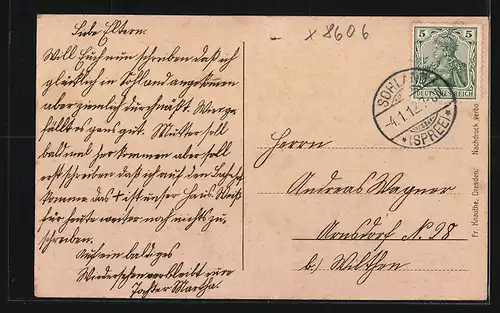 x 8606
Liebe Eltern.
Will Euch nun schreiben daß ich
glücklich in Sohland angekommen
aber ziemlich durchnäßt. Mir ge-
fällt es ganz gut. Mutter soll
bald mal herkommen aber soll
erst schreiben daß ich auf den Bahnhof
komme das + ist unser Haus. Weiß
für heute weiter noch nichts zu
schreiben.
Auf ein baldiges
Wiedersehen verbleibt eure
Tochter Martha.
5 5
DEUTSCHES REICH
SOHLAND
4.1.12
*(SPREE)*
Herrn
Andreas Wagner
Arnsdorf No 28
b./ Wilthen
Fr. Knauthe, Dresden Nachdruck verb.